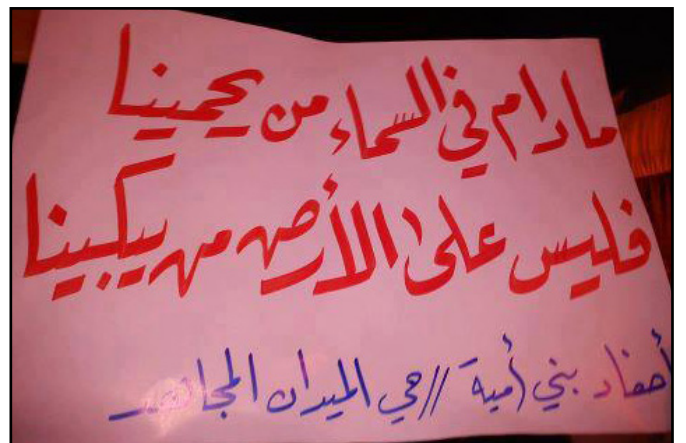 مادام في السماء من يحمينا
فليس على الأرض من يبكينا
أحفاد بني أمية // حي الميدان المجاهد